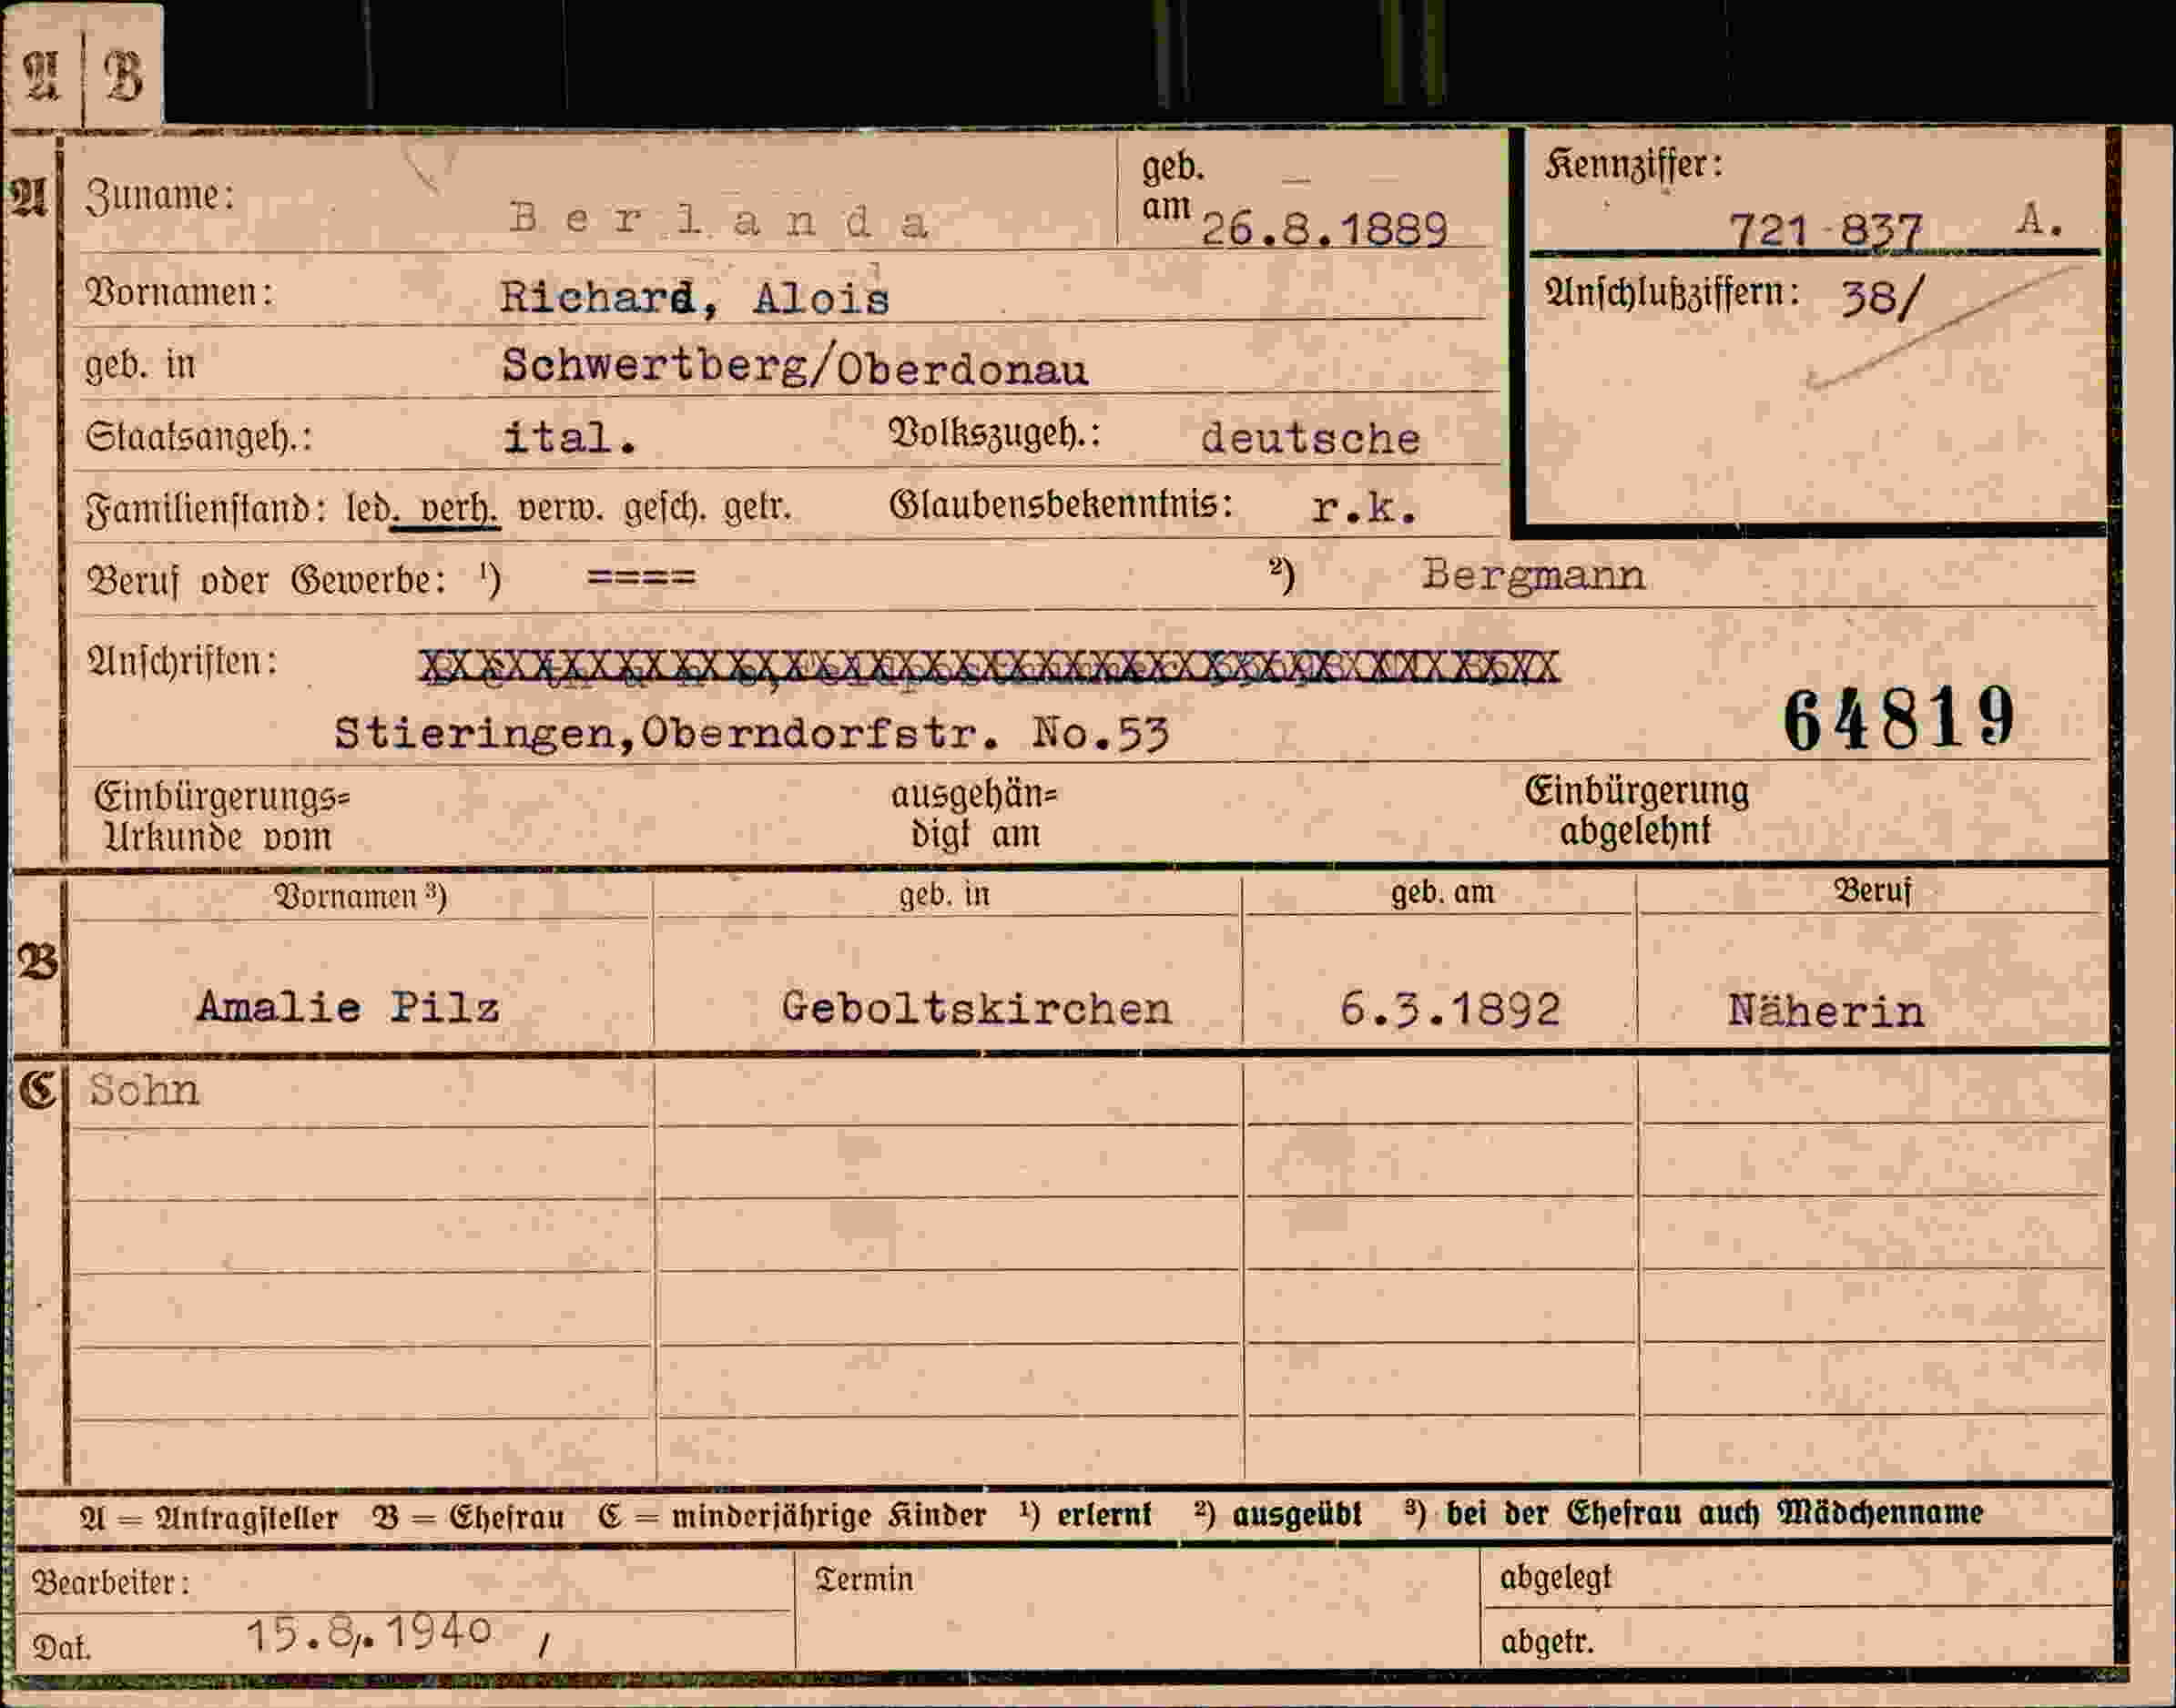 A B
A Zuname: Berlanda geb. am 26.8.1889 Kennziffer: 721-837 A.
Vornamen: Richard, Alois Anschlußziffern: 38/
geb. in Schwertberg/Oberdonau
Staatsangeh.: ital. Volkszugeh.: deutsche
Familienstand: led. verh. verw. gesch. getr. Glaubensbekenntnis: r.k.
Beruf oder Gewerbe: ¹) ==== ²) Bergmann
Anschriften:
Stieringen,Oberndorfstr. No.53 64819
Einbürgerungs= ausgehän= Einbürgerung
Urkunde vom digt am abgelehnt
Vornamen ³) geb. in geb. am Beruf
B Amalie Pilz Geboltskirchen 6.3.1892 Näherin
C Sohn
A = Antragsteller B = Ehefrau C = minderjährige Kinder ¹) erlernt ²) ausgeübt ³) bei der Ehefrau auch Mädchenname
Bearbeiter: Termin abgelegt
Dat. 15.8.1940 abgetr.